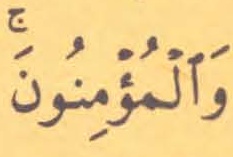 وَٱلْمُؤْمِنُونَۚ